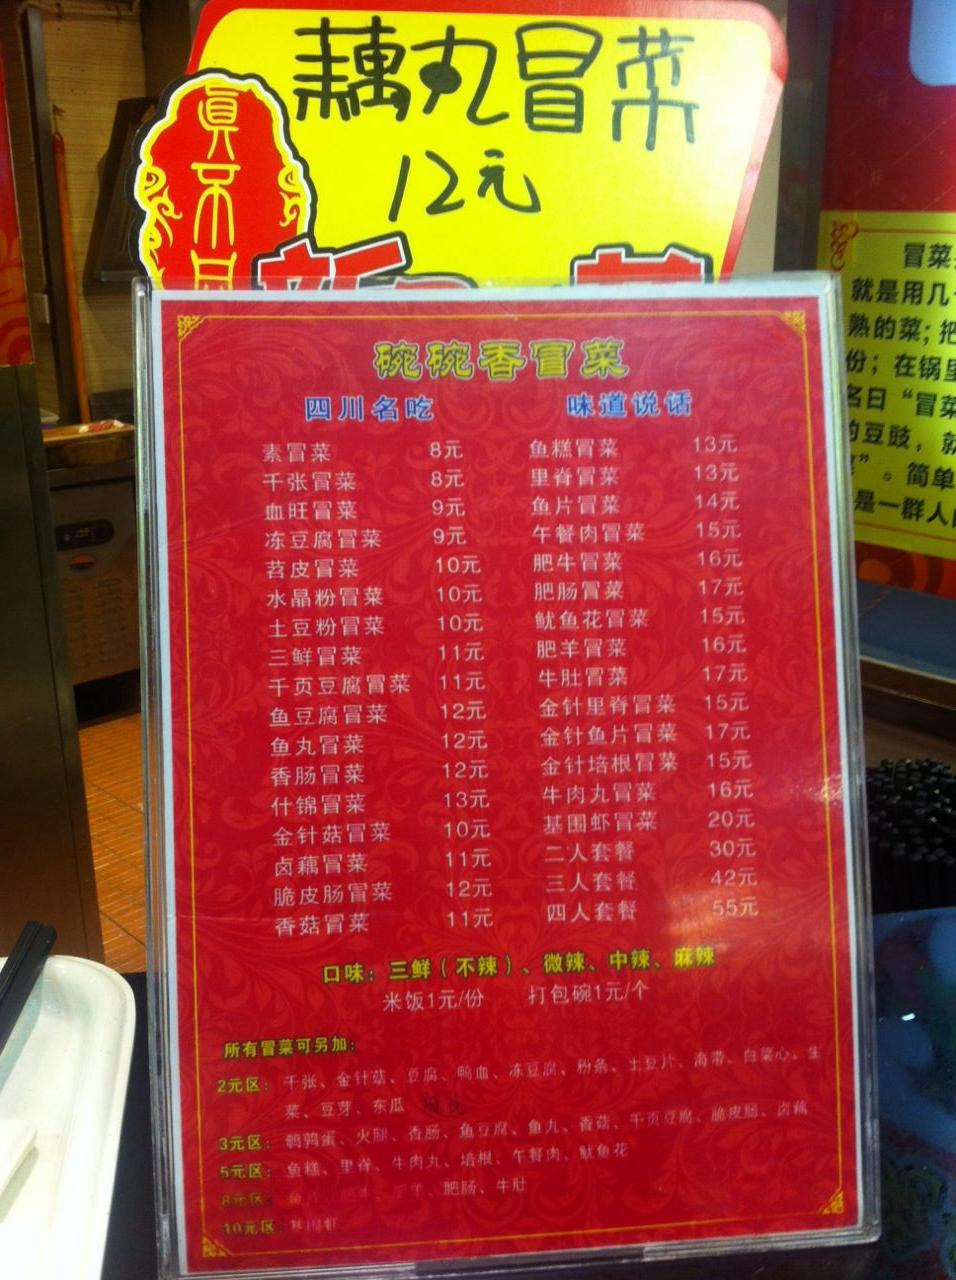 藕丸冒菜
12元
真不同
碗碗香冒菜
四川名吃 味道说话
素冒菜 8元 鱼糕冒菜 13元
千张冒菜 8元 里脊冒菜 13元
血旺冒菜 9元 鱼片冒菜 14元
冻豆腐冒菜 9元 午餐肉冒菜 15元
苕皮冒菜 10元 肥牛冒菜 16元
水晶粉冒菜 10元 肥肠冒菜 17元
土豆粉冒菜 10元 鱿鱼花冒菜 15元
三鲜冒菜 11元 肥羊冒菜 16元
千页豆腐冒菜 11元 牛肚冒菜 17元
鱼豆腐冒菜 12元 金针里脊冒菜 15元
鱼丸冒菜 12元 金针鱼片冒菜 17元
香肠冒菜 12元 金针培根冒菜 15元
什锦冒菜 13元 牛肉丸冒菜 16元
金针菇冒菜 10元 基围虾冒菜 20元
卤藕冒菜 11元 二人套餐 30元
脆皮肠冒菜 12元 三人套餐 42元
香菇冒菜 11元 四人套餐 55元
口味：三鲜（不辣）、微辣、中辣、麻辣
米饭1元/份 打包碗1元/个
所有冒菜可另加：
2元区：千张、金针菇、豆腐、鸭血、冻豆腐、粉条、土豆片、海带、白菜心、生
菜、豆芽、东瓜
3元区：鹌鹑蛋、火腿、香肠、鱼豆腐、鱼丸、香菇、千页豆腐、脆皮肠、卤藕
5元区：鱼糕、里脊、牛肉丸、培根、午餐肉、鱿鱼花
8元区：肥肠、牛肚
10元区：
冒菜
就是用几
熟的菜；把
份；在锅里
名曰“冒菜
的豆豉，就
”。简单
是一群人